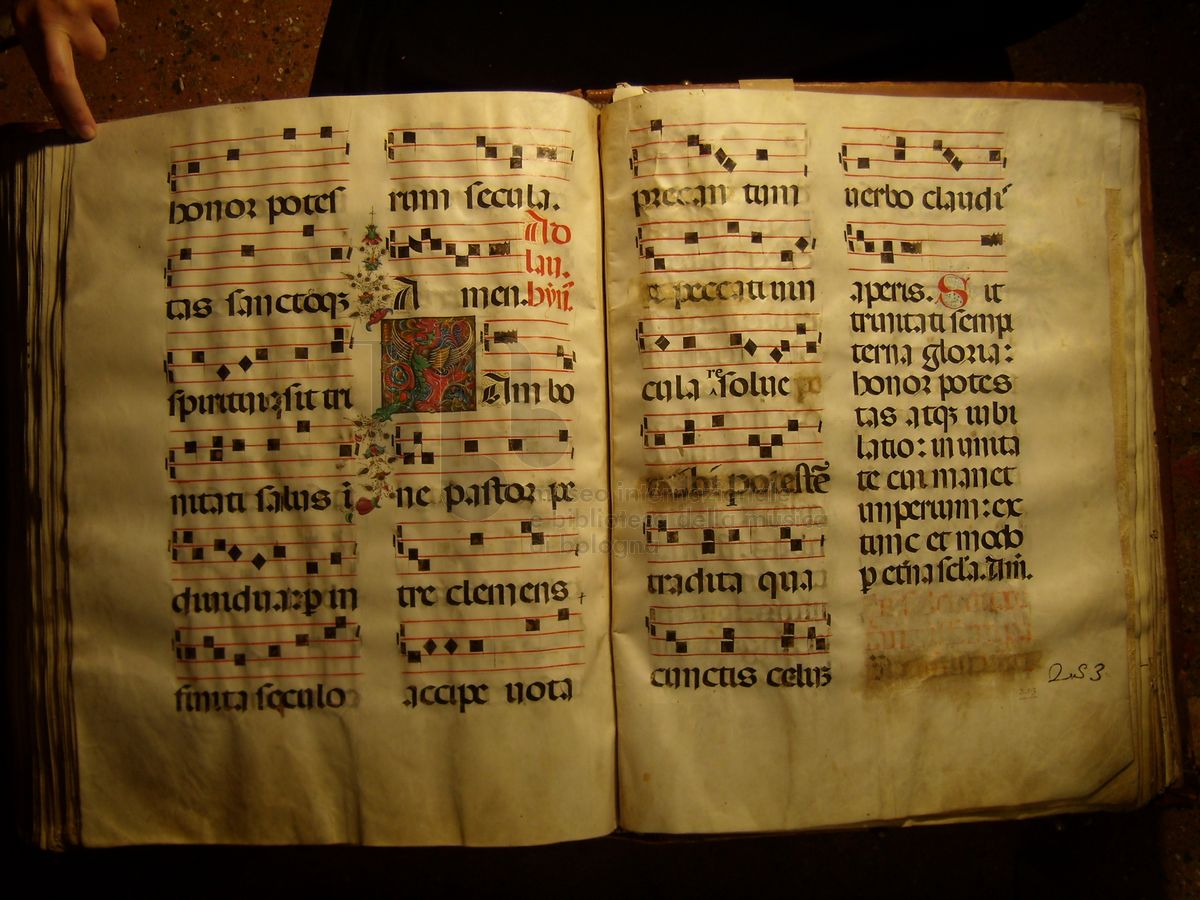 honor potes
tas sanctoqꝫ
spirituiꝫ sit tri
nitati salus i
diuidua: ꝑ in
finita seculo
rum secula.
A men.
Ad
lau.
hyn̄.
Iam bo
ne pastor pe
tre clemens
accipe uota
precan tum
et peccati uin
cula resolue
tibi potestē
tradita qua
cunctis celuꝫ
uerbo claudı̄
aperis. Sit
trinitati semp
terna gloria:
honor potes
tas atqꝫ iubi
latio: in unita
te cui manet
imperium: ex
tunc et modo
ꝑ et̄na sc̄la. Am̄.
253
museo internazionale
e biblioteca della musica
di bologna